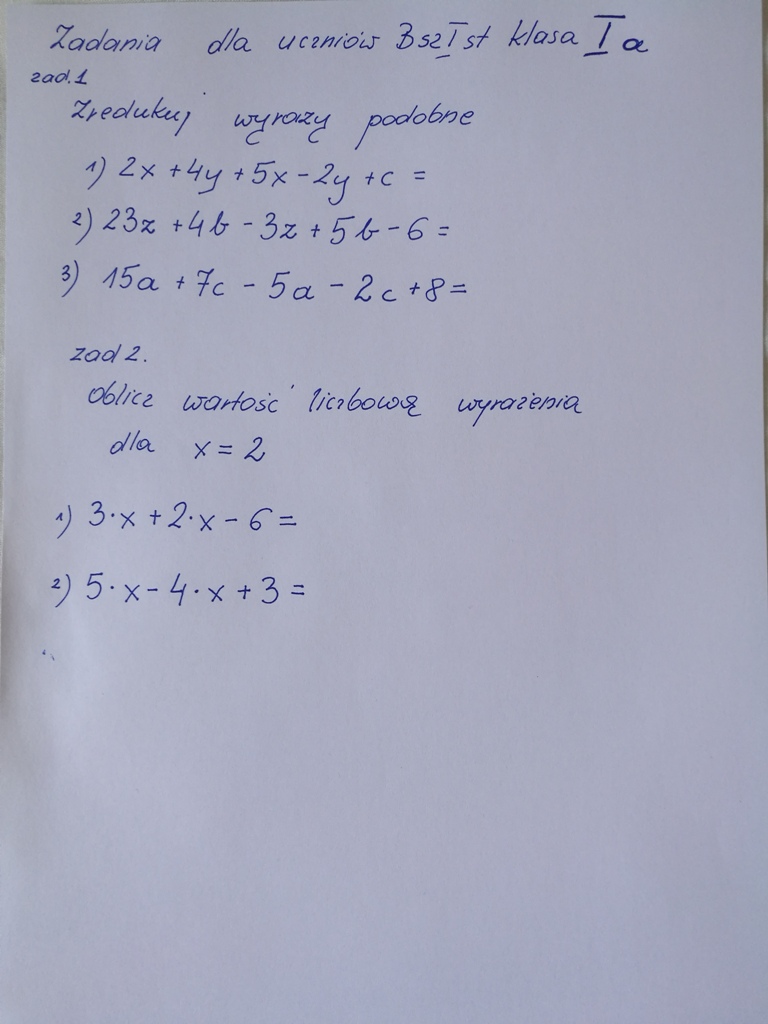 Zadania dla uczniów BszIst klasa I a
zad.1
Zredukuj wyrazy podobne
1) 2x + 4y + 5x - 2y + c =
2) 23z + 4b - 3z + 5b - 6 =
3) 15a + 7c - 5a - 2c + 8 =
zad 2.
Oblicz wartość liczbową wyrażenia
dla x = 2
1) 3·x + 2·x - 6 =
2) 5·x - 4·x + 3 =